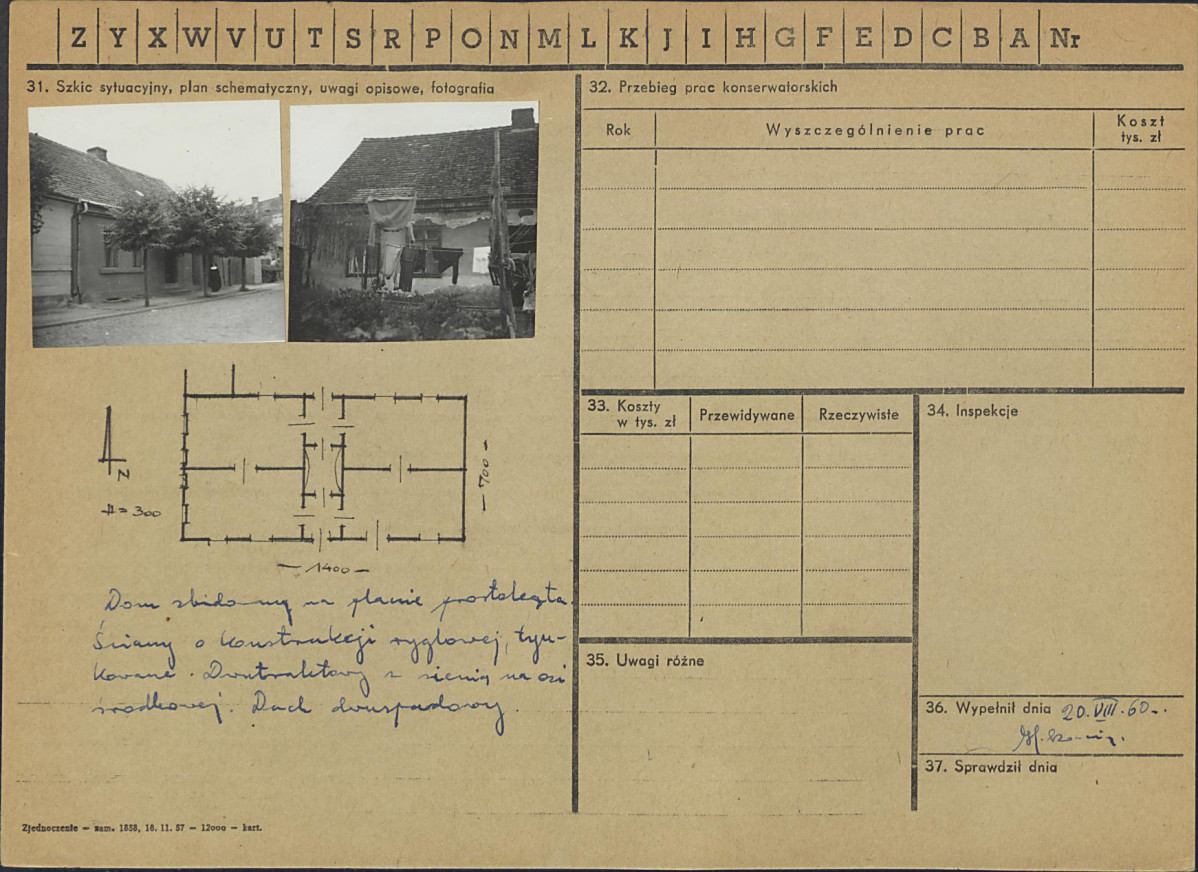 Z Y X W V U T S R P O N M L K J I H G F E D C B A Nr
31. Szkic sytuacyjny, plan schematyczny, uwagi opisowe, fotografia
N
= 300
— 700 —
— 1400 —
Dom zbudowany na planie prostokąta.
Ściany o konstrukcji ryglowej, tyn-
kowane. Dwutraktowy z sienią na osi
środkowej. Dach dwuspadowy.
Zjednoczenie — zam. 1858, 16. 11. 57 — 12000 — kart.
32. Przebieg prac konserwatorskich
Rok Wyszczególnienie prac Koszt
tys. zł
33. Koszty
w tys. zł Przewidywane Rzeczywiste
34. Inspekcje
35. Uwagi różne
36. Wypełnił dnia 20.VIII.60.
37. Sprawdził dnia